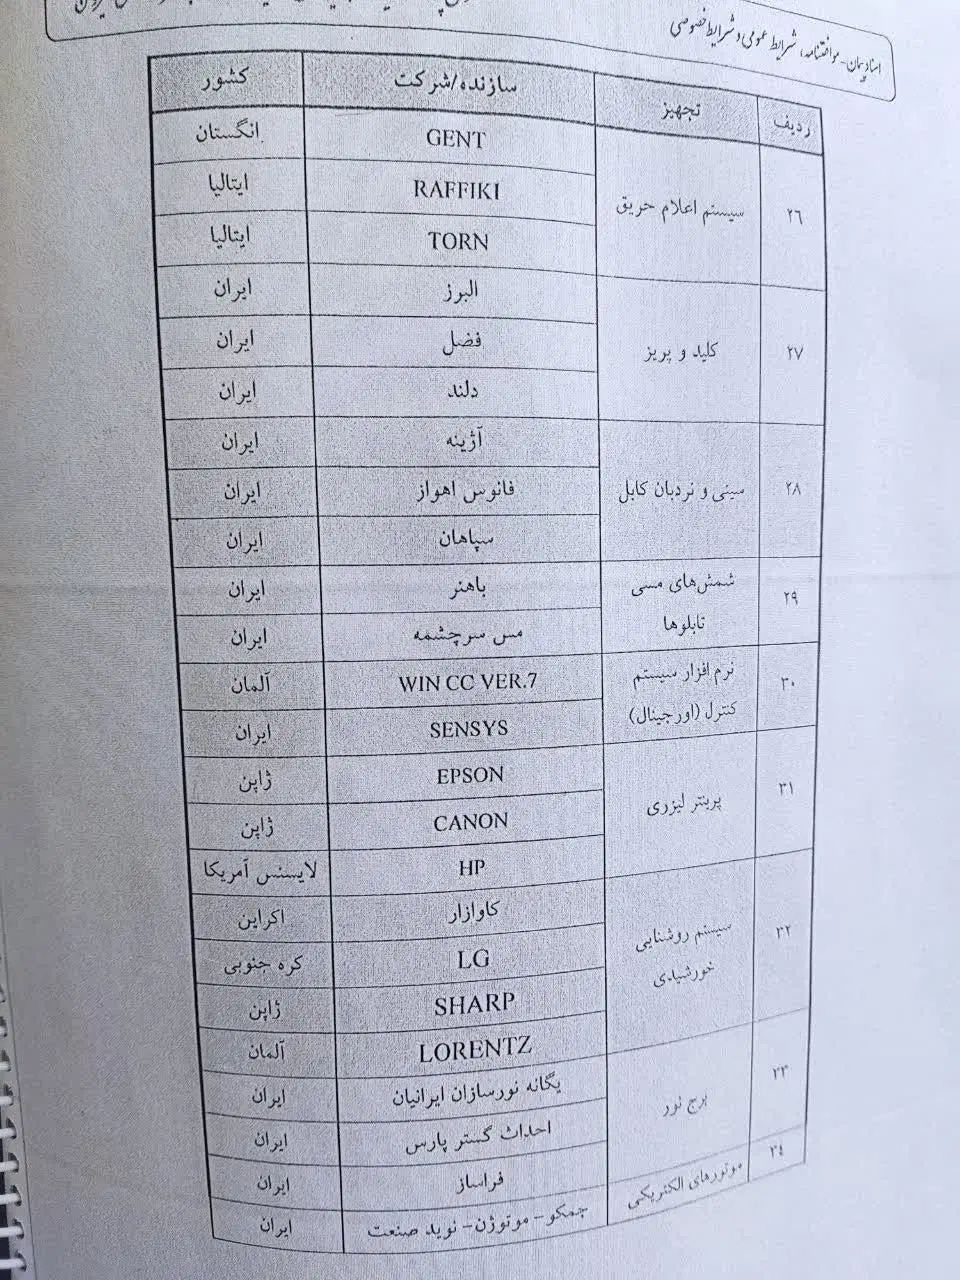 اسناد پیمان - موافقتنامه، شرایط عمومی و شرایط خصوصی
ردیف تجهیز سازنده/شرکت کشور
۲۶ سیستم اعلام حریق GENT انگستان
RAFFIKI ایتالیا
TORN ایتالیا
۲۷ کلید و پریز البرز ایران
فضل ایران
دلند ایران
۲۸ سینی و نردبان کابل آژینه ایران
فانوس اهواز ایران
سپاهان ایران
۲۹ شمش‌های مسی تابلوها باهنر ایران
مس سرچشمه ایران
۳۰ نرم افزار سیستم کنترل (اورجینال) WIN CC VER.7 آلمان
SENSYS ایران
۳۱ پرینتر لیزری EPSON ژاپن
CANON ژاپن
HP لایسنس آمریکا
۳۲ سیستم روشنایی خورشیدی کاوازار اکراین
LG کره جنوبی
SHARP ژاپن
LORENTZ آلمان
۳۳ برج نور یگانه نورسازان ایرانیان ایران
احداث گستر پارس ایران
فراساز ایران
۳۴ موتورهای الکتریکی جمکو - موتوژن - نوید صنعت ایران